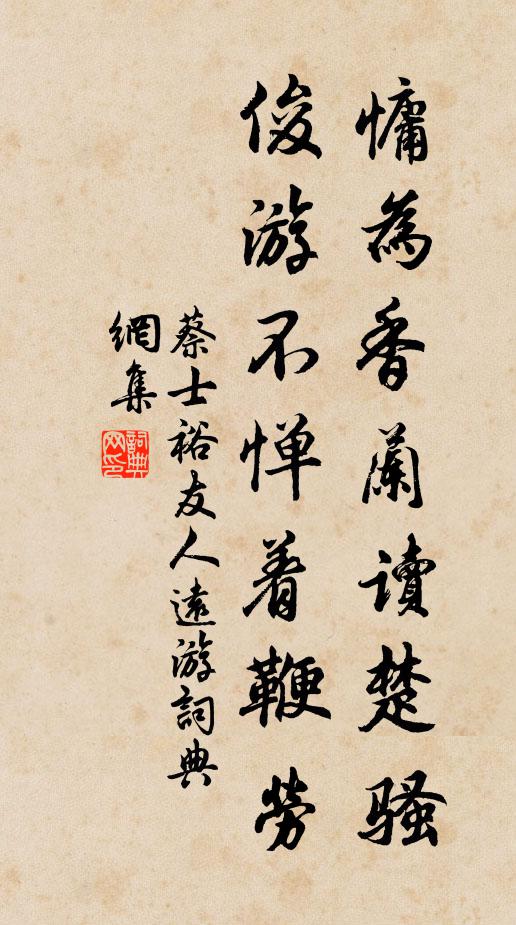 慵為香蘭讀楚骚
俊游不惮着鞭勞
蔡士裕友人遠游詞典
網集
詞典網印